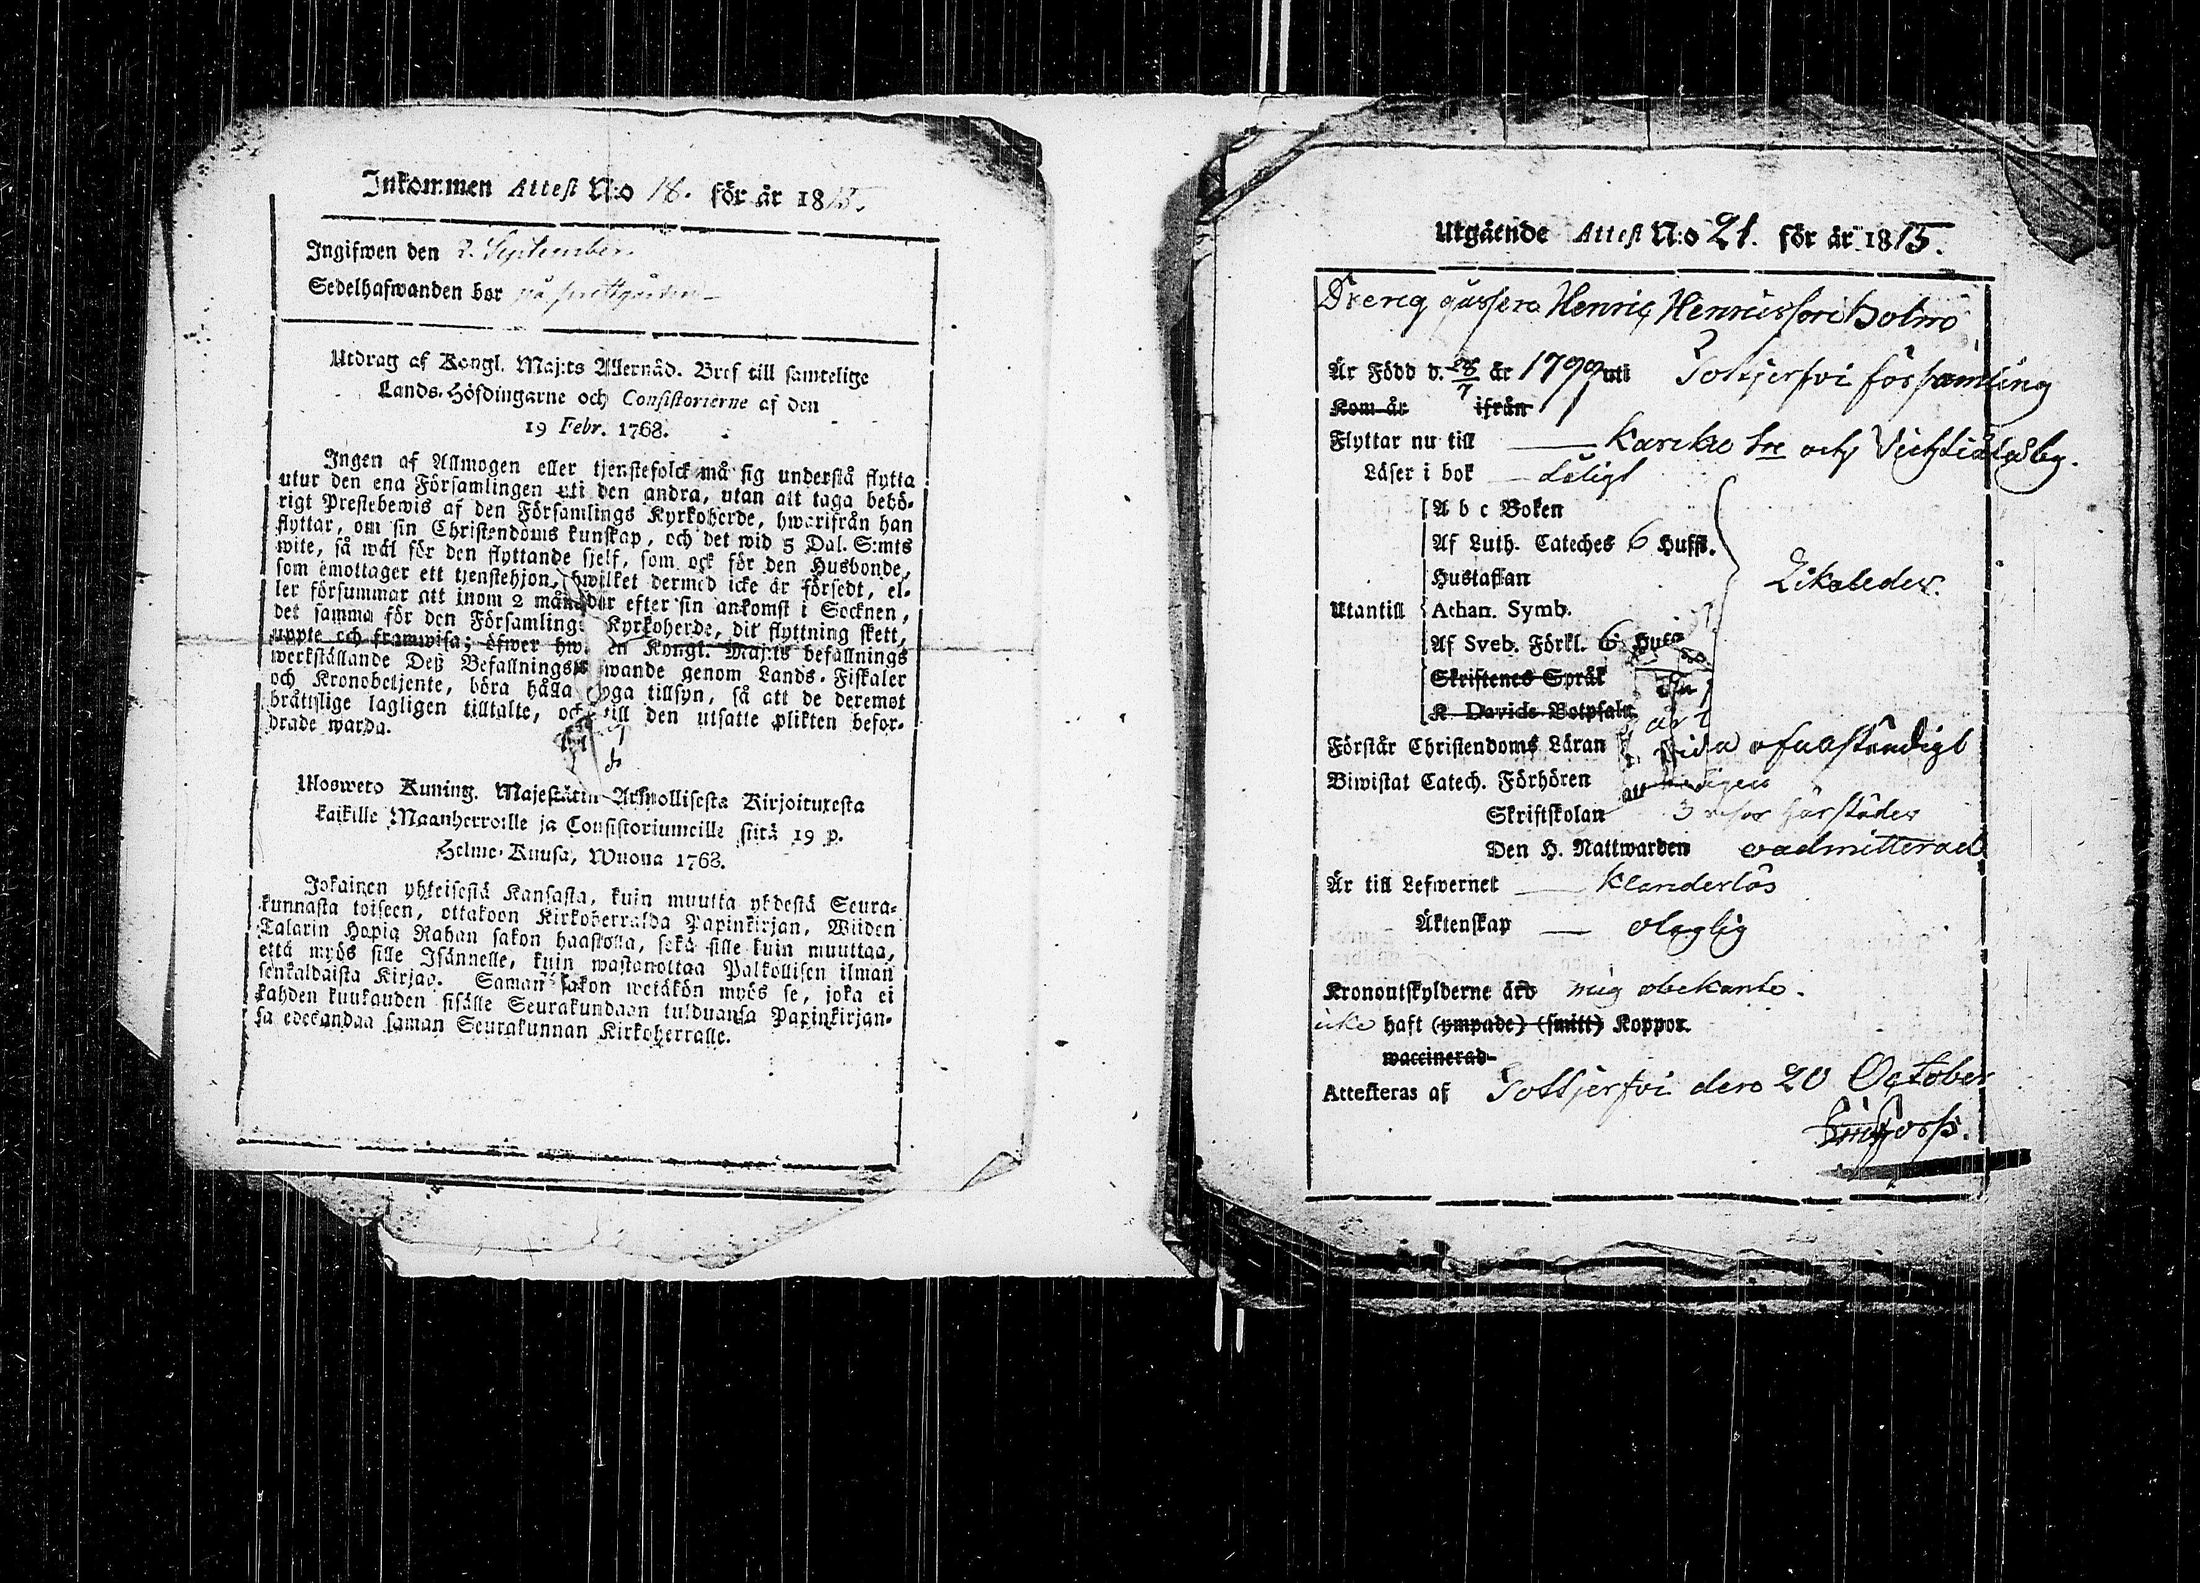 Inkommen Attest N:o 18. för år 1815.
Ingifwen den 2. September
Sedelhafwanden bor på prestgården
Utdrag af Kongl. Maj:ts Allernåd. Bref till samtelige
Lands-Höfdingarne och Consistorierne af den
19 Febr. 1768.
Ingen af Allmogen eller tjenstefolck må sig understå flytta
utur den ena Församlingen uti den andra, utan att taga behö-
rigt Prestebewis af den Församlings Kyrkoherde, hwarifrån han
flyttar, om sin Christendoms kunskap, och det wid 5 Dal. S:mts
wite, så wäl för den flyttande sjelf, som ock för den Husbonde,
som emottager ett tjenstehjon, hwilket dermed icke är försedt, el-
ler försummar att inom 2 månader efter sin ankomst i Socknen,
det samma för den Församlings Kyrkoherde, dit flyttning skett,
uppte och framwisa; öfwer hw en Kongl. Maj:ts befallnings
werkställande Deß Befallningshafwande genom Lands-Fiskaler
och Kronobetjente, böra hålla noga tillsyn, så att de deremot
bråttslige lagligen tilltalte, och till den utsatte plikten befor-
drade warda.
Ulosweto Kuning. Majestätin Armollisesta Kirjoituxesta
kaikille Maanherroille ja Consistoriumeille siitä 19 p.
Helme-Kuusa, Wuona 1768.
Jokainen yhteisestä Kansasta, kuin muutta yhdestä Seura-
kunnasta toiseen, ottakoon Kirkoherralda Papinkirjan, Wiiden
Talarin Hopia Rahan sakon haastolla, sekä sille kuin muuttaa,
että myös sille Isännelle, kuin wastanottaa Palkollisen ilman
senkaldaista Kirjaa. Saman sakon wetäkön myös se, joka ei
kahden kuukauden sisälle Seurakundaan tulduansa Papinkirjan-
sa edesandaa saman Seurakunnan Kirkoherralle.
Utgående Attest N:o 21. för år 1815.
Dreng gåssen Henric Henricsson Holm
Är Född d. 28/7 år 1799 uti Sotkjerfvi församling
Kom år ifrån
Flyttar nu till Karcku Sn och by.
Läser i bok
A b c Boken
Af Luth. Cateches 6 Hufst.
Hustaflan
Utantill Athan. Symb. Likaledes.
Af Sveb. Förkl. 6 Hufst
Skriftenes Språk
K. Davids Botpsalm
Förstår Christendoms Läran ofullständigt
Biwistat Catech. Förhören
Skriftskolan 3 resor härstädes
Den H. Nattwarden oadmitterad
Är till Lefwernet klanderlös
Äktenskap olaglig
Kronoutskylderne äro mig obekante.
icke haft (ympade) (smitt) Koppor.
waccinerad
Attesteras af den 20 October